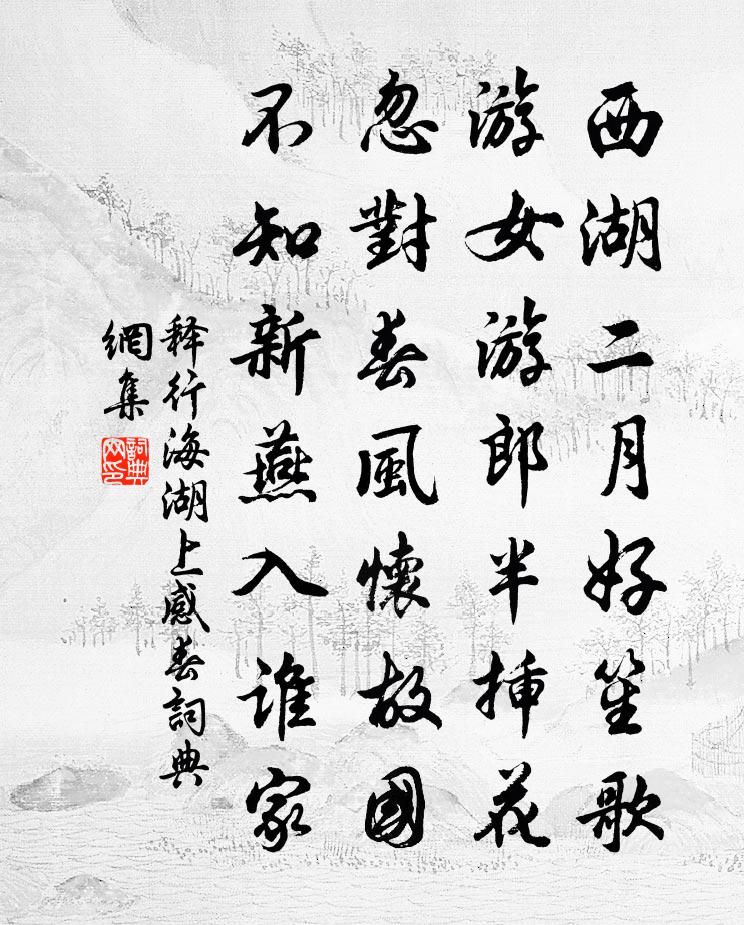 西湖二月好笙歌
游女游郎半揷花
忽對春風懷故國
不知新燕入誰家
释行海湖上感春詞典
網集
詞典
网印